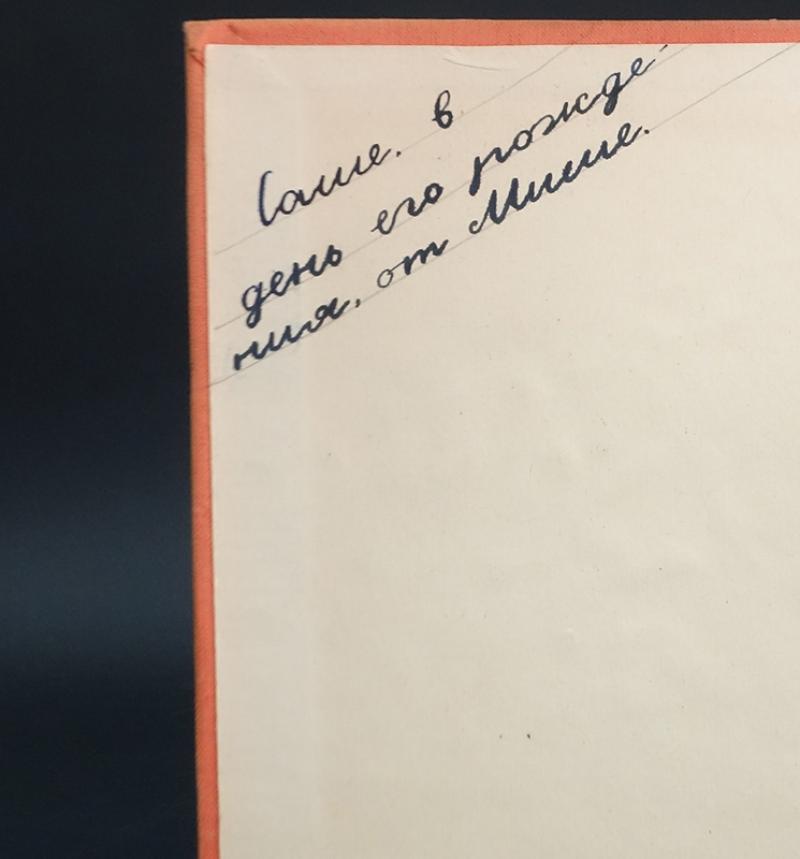 Саше. в
день его рожде-
ния, от Мише.